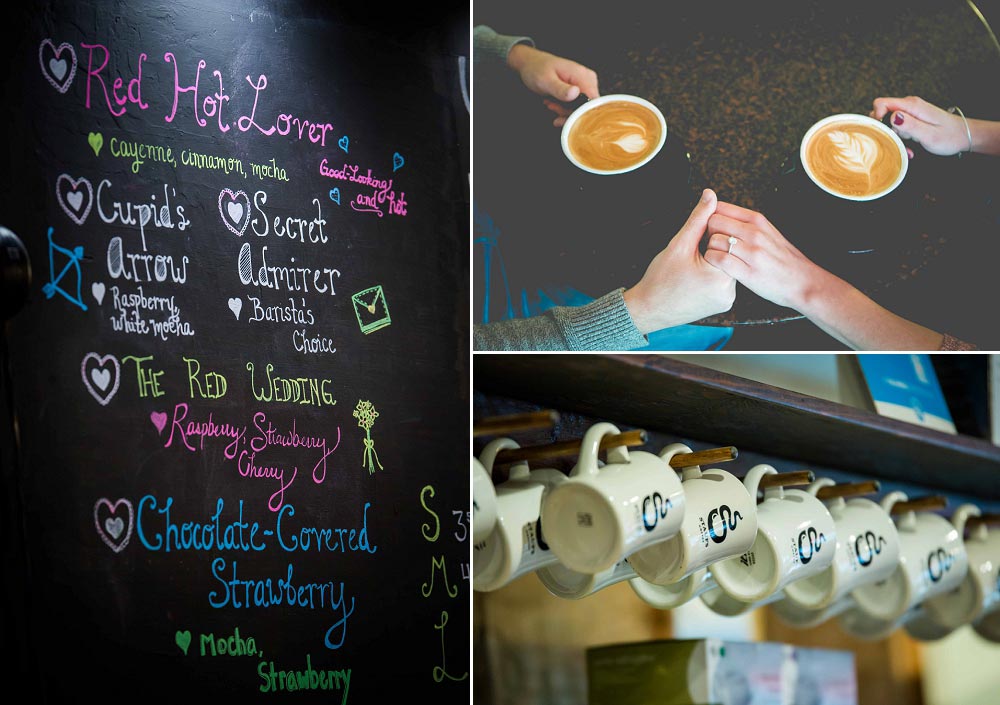 Red Hot Lover
cayenne, cinnamon, mocha
Good-Looking
and hot
Cupid's
Arrow
Raspberry,
white mocha
Secret
Admirer
Barista's
Choice
The Red Wedding
Raspberry, Strawberry,
Cherry
Chocolate-Covered
Strawberry
Mocha,
Strawberry
S 3
M
L